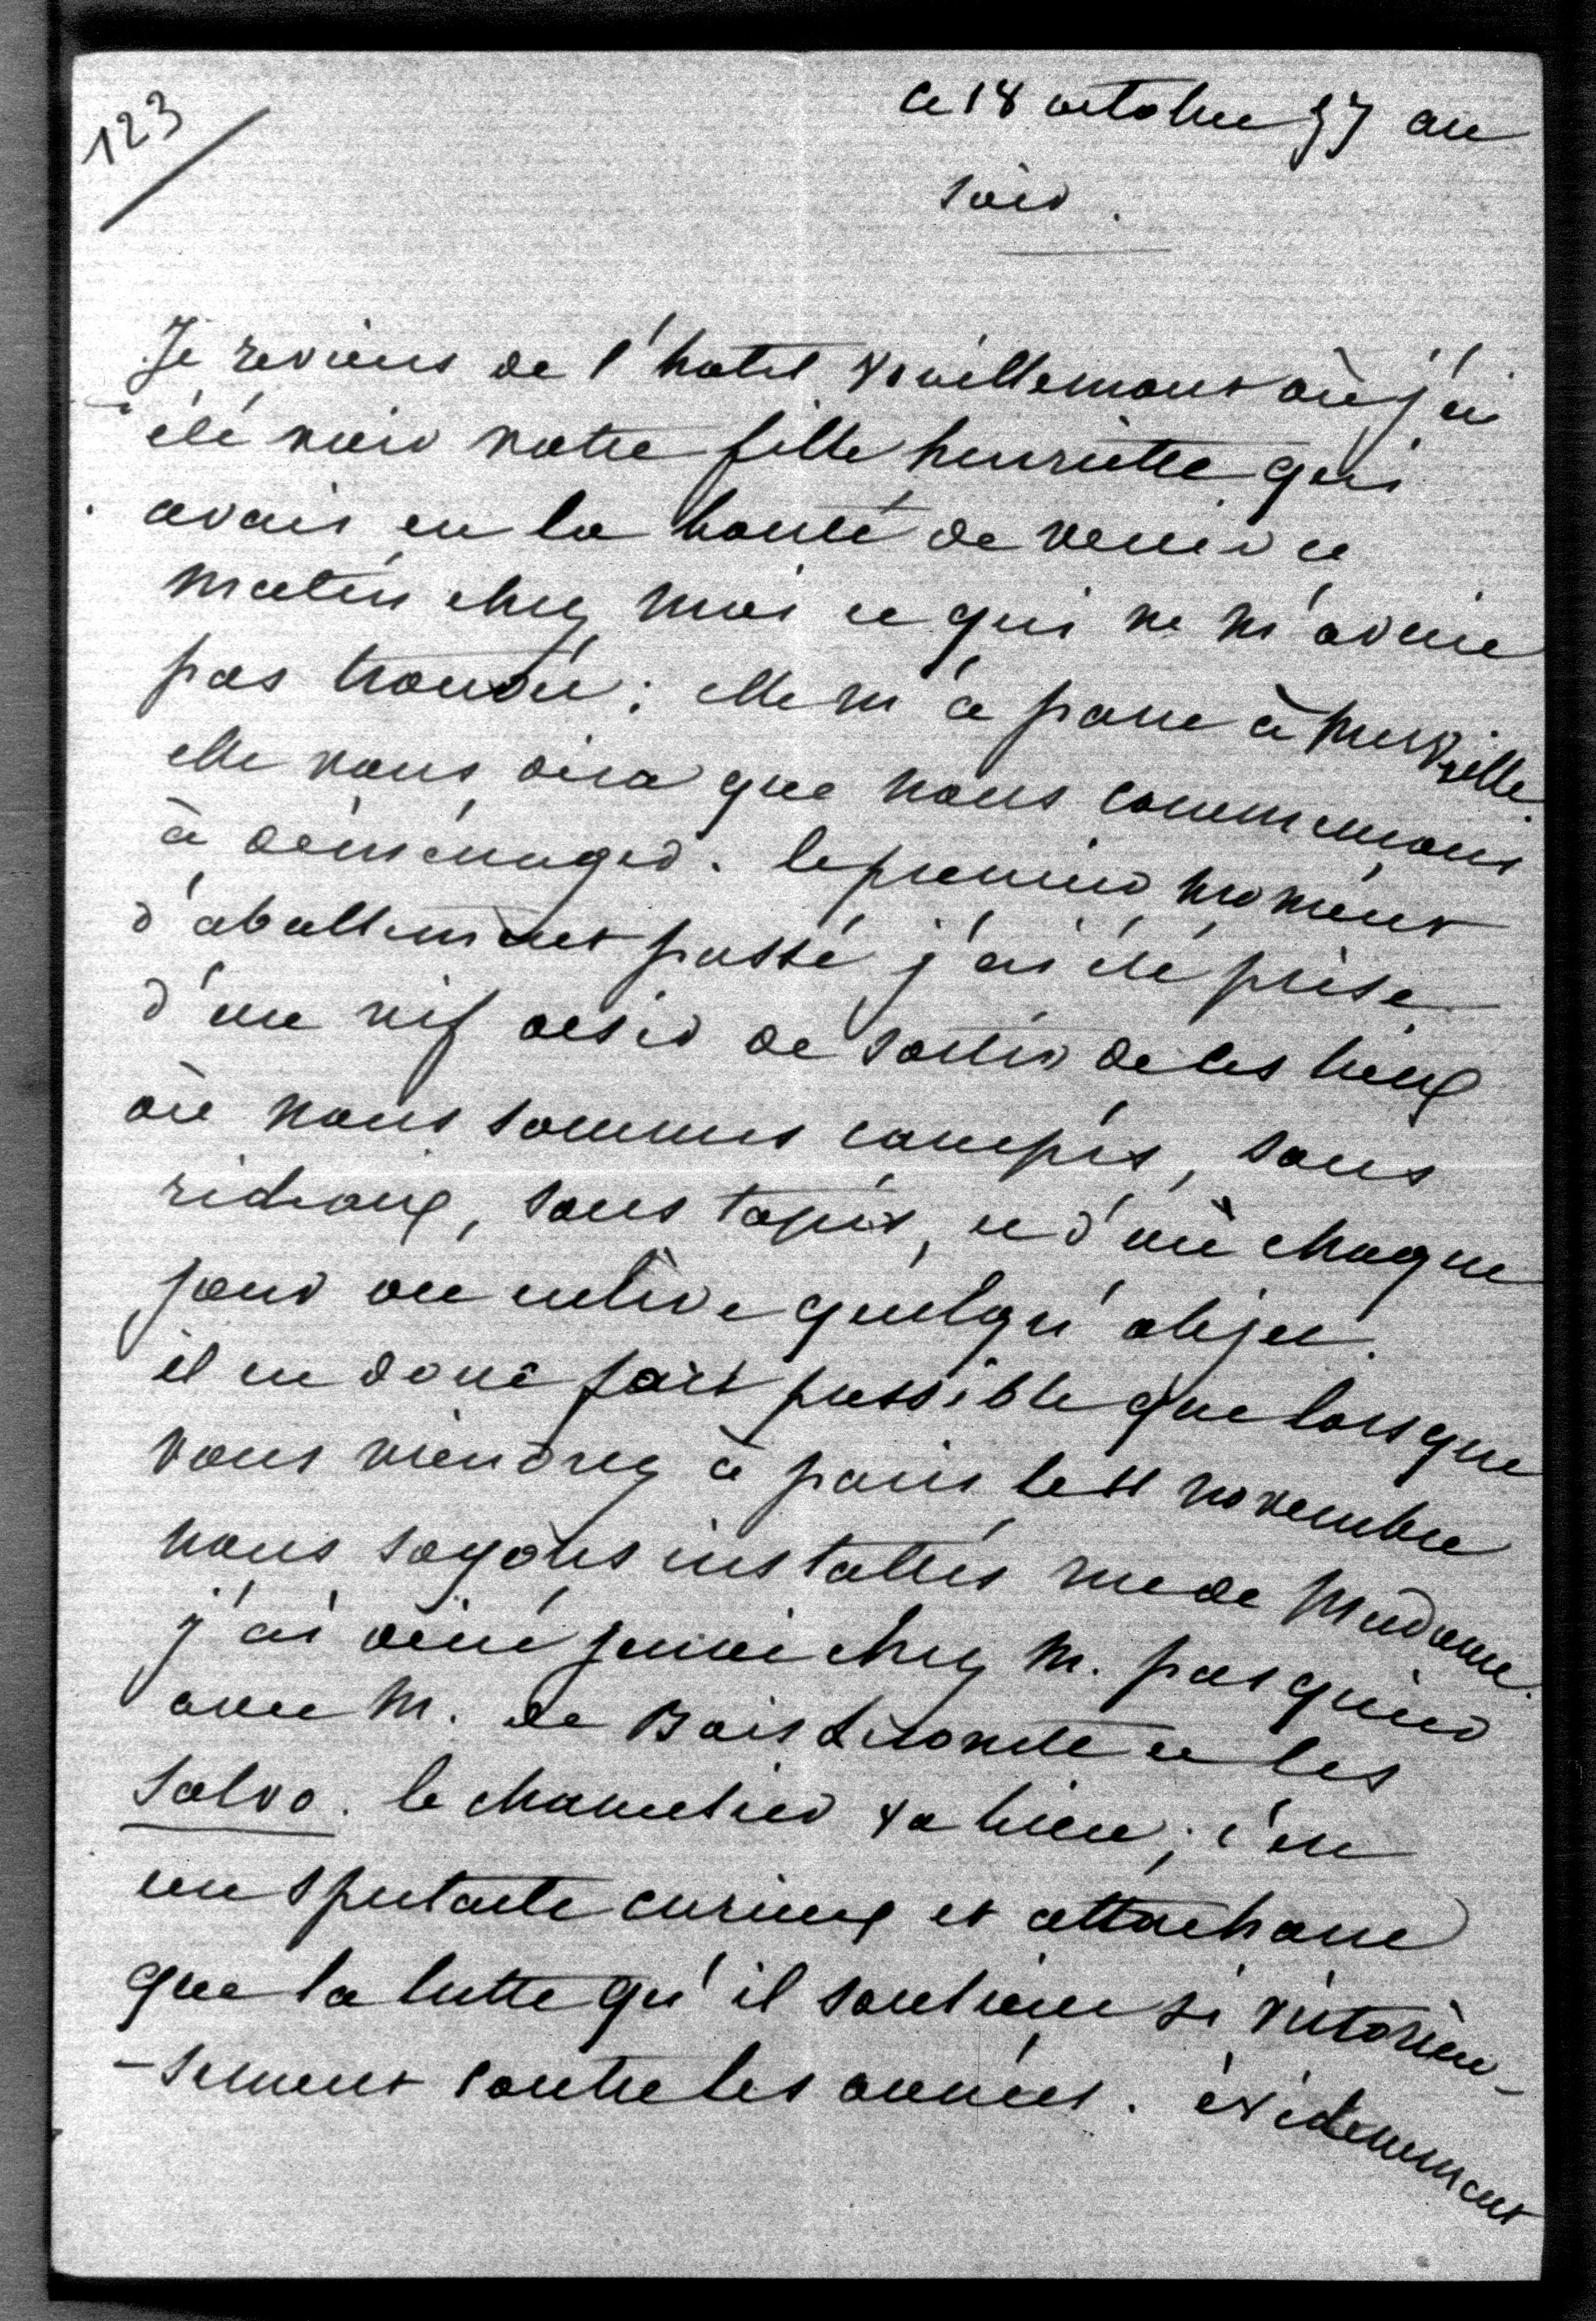 123
ce 18 octobre 57 au
soir.
Je reviens de l'hotel Vouillemont où j'ai
été voir votre fille henriette qui
avait eu la bonté de venir ce
matin chez moi et qui ne m'avait
pas trouvée; elle m'a paru à merveille
elle vous dira que nous commençons
à déménager. le premier moment
d'abattement passé j'ai été prise
d'un vif désir de sortir de ces lieux
où nous sommes campés, sans
rideaux, sans tapis, et d'où chaque
jour on enlève quelqu'objet.
il est donc fort possible que lorsque
vous viendrez à paris le 11 novembre
nous soyons installés rue de Madame.
j'ai diné jeudi chez M. pasquier
avec M. de Bois le Comte et les
Salvo. le chancelier va bien; c'est
un spectacle curieux et attachant
que la lutte qu'il soutient si victorieu-
-sement contre les années. évidemment